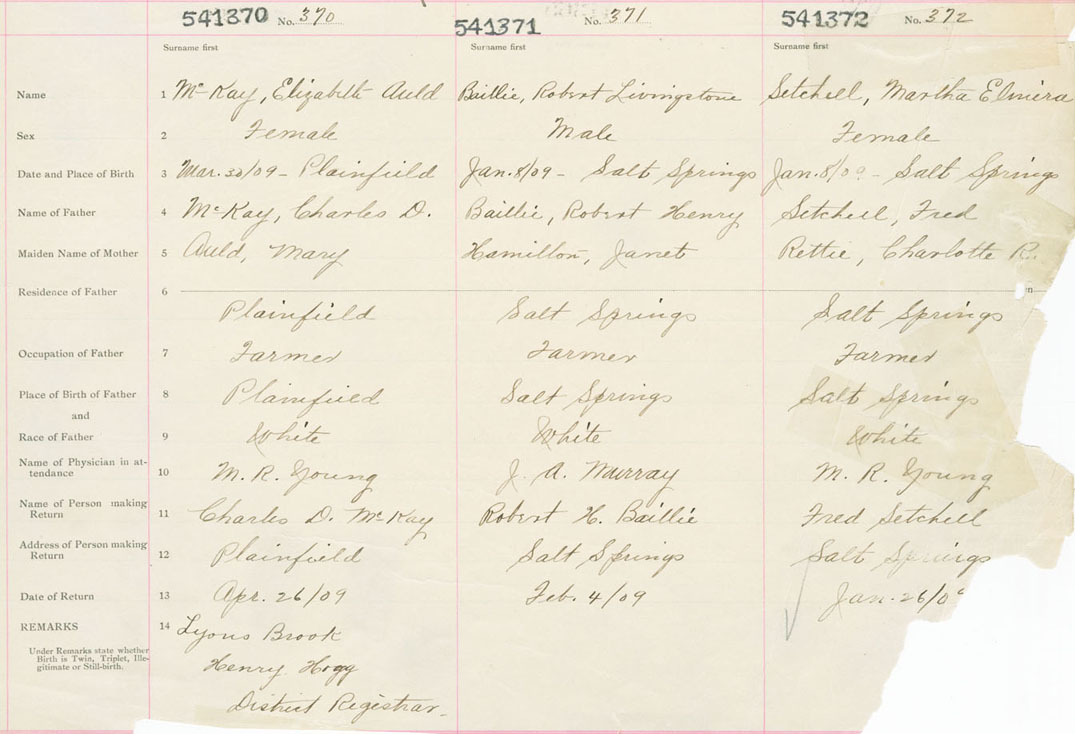 541370 No. 370 541371 No. 371 541372 No. 372
Surname first Surname first Surname first
Name 1 McKay, Elizabeth Auld Baillie, Robert Livingstone Setchell, Martha Elmira
Sex 2 Female Male Female
Date and Place of Birth 3 Mar. 30/09 - Plainfield Jan. 8/09 - Salt Springs Jan. 8/09 - Salt Springs
Name of Father 4 McKay, Charles D. Baillie, Robert Henry Setchell, Fred
Maiden Name of Mother 5 Auld, Mary Hamilton, Janet Rettie, Charlotte R.
Residence of Father 6
Plainfield Salt Springs Salt Springs
Occupation of Father 7 Farmer Farmer Farmer
Place of Birth of Father 8 Plainfield Salt Springs Salt Springs
and
Race of Father 9 White White White
Name of Physician in at-
tendance 10 M. R. Young J. A. Murray M. R. Young
Name of Person making
Return 11 Charles D. McKay Robert H. Baillie Fred Setchell
Address of Person making
Return 12 Plainfield Salt Springs Salt Springs
Date of Return 13 Apr. 26/09 Feb. 4/09 Jan. 26/09
REMARKS 14 Lyons Brook
Under Remarks state whether
Birth is Twin, Triplet, Ille-
gitimate or Still-birth.
Henry Hogg
District Registrar.